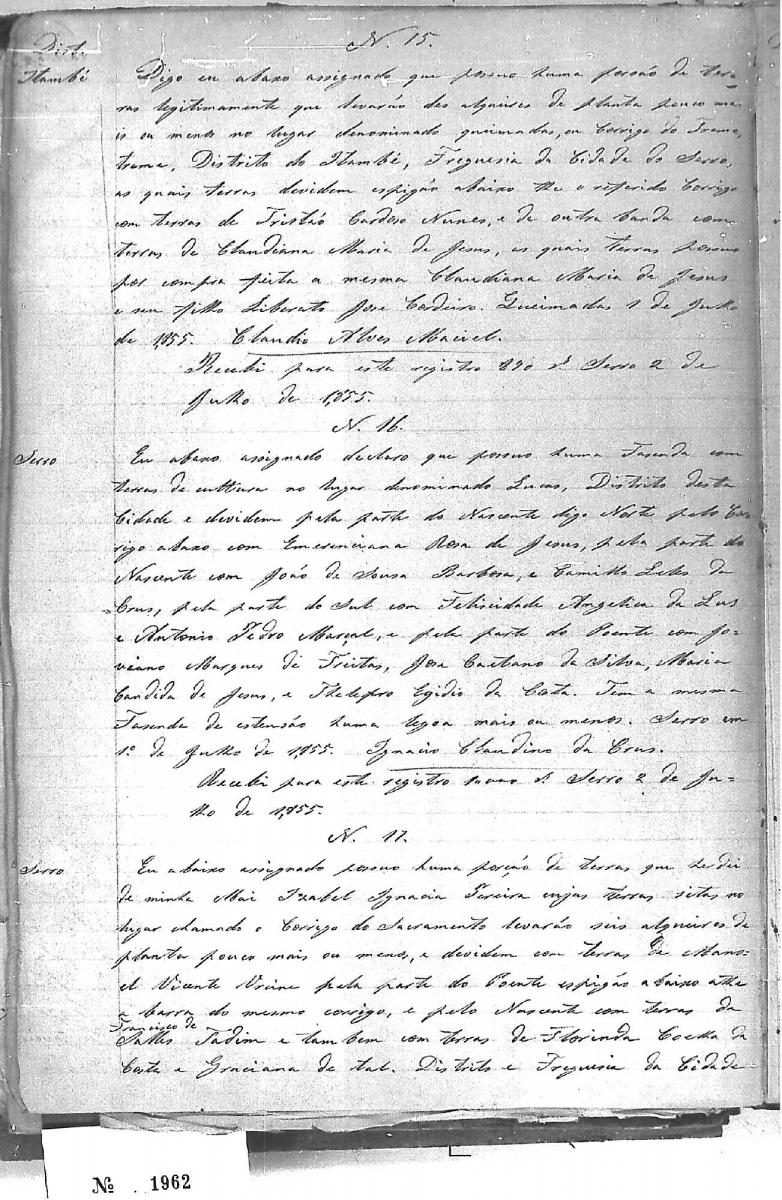 N. 15.
Dist.
Itambé
Digo eu abaxo assignado que possuo huma porsão de ter-
ras legitimamente que levarão des alqueires de planta pouco ma-
is ou menos no lugar denominado queimadas, ou Corrigo do Treme,
treme, Distrito do Itambé, Freguesia da Cidade do Serro,
as quais terras devidem espigão abaixo the o referido Corrigo
com terras de Tristão Cardoso Nunes, e de outra banda com
terras de Claudiana Maria de Jesus, as quais terras possuo
por compra feita a mesma Claudiana Maria de Jesus
e seu filho Liberato Jose Cordeiro. Queimadas 1 de Julho
de 1,855. Claudio Alves Maciel.
Recebi para este registro 890 rs. Serro 2 de
Julho de 1,855.
N. 16.
Serro
Eu abaxo assignado declaro que possuo huma Fasenda com
terras de cultura no lugar denominado Lucas, Distrito desta
Cidade e devidem pela parte do Nascente digo Norte pelo Cor-
rigo abaxo com Emerenciana Rosa de Jesus, pela parte do
Nascente com João de Sousa Barbosa, e Camillo Leles da
Crus, pela parte do Sul com Felicidade Angelica da Lus
e Antonio Pedro Marçal, e pela parte do Poente com Jo-
viano Marques de Freitas, Jose Caetano da Silva, Maria
Candida de Jesus, e Thelesfro Egidio da Costa. Tem a mesma
Fasenda de estensão huma legoa mais ou menos. Serro em
1º de Julho de 1,855. Ignacio Claudino da Crus.
Recebi para este registro rs. Serro 2 de Ju-
lho de 1,855.
N. 17.
Serro
Eu abaixo assignado possuo huma porção de terras que herdei
de minha Mai Izabel Ignacia Pereira cujas terras sitas no
lugar chamado o Corrigo do Sacramento levarão seis alqueires de
planta pouco mais ou menos, e devidem com terras de Mano-
el Vicente pela parte do Poente espigão abaixo athe
a barra do mesmo corrigo, e pelo Nascente com terras da
Francisco de
Salles Jadim e tambem com terras de Florinda Coelha da
Costa e Graciana de tal. Distrito e Freguesia da Cidade
№ 1962